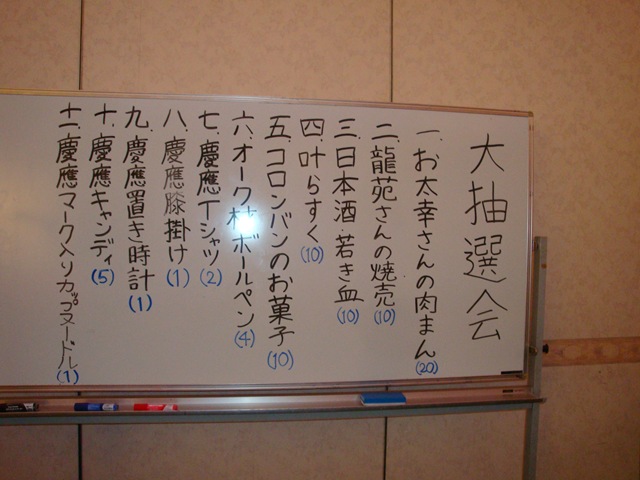 大抽選会
一、お太幸さんの肉まん(20)
二、龍苑さんの焼売(10)
三、日本酒 若き血(10)
四、叶らすく(10)
五、コロンバンのお菓子(10)
六、オーク材ボールペン(4)
七、慶應Tシャツ(2)
八、慶應膝掛け(1)
九、慶應置き時計(1)
十、慶應キャンディ(5)
十一、慶應マーク入りカップヌードル(1)